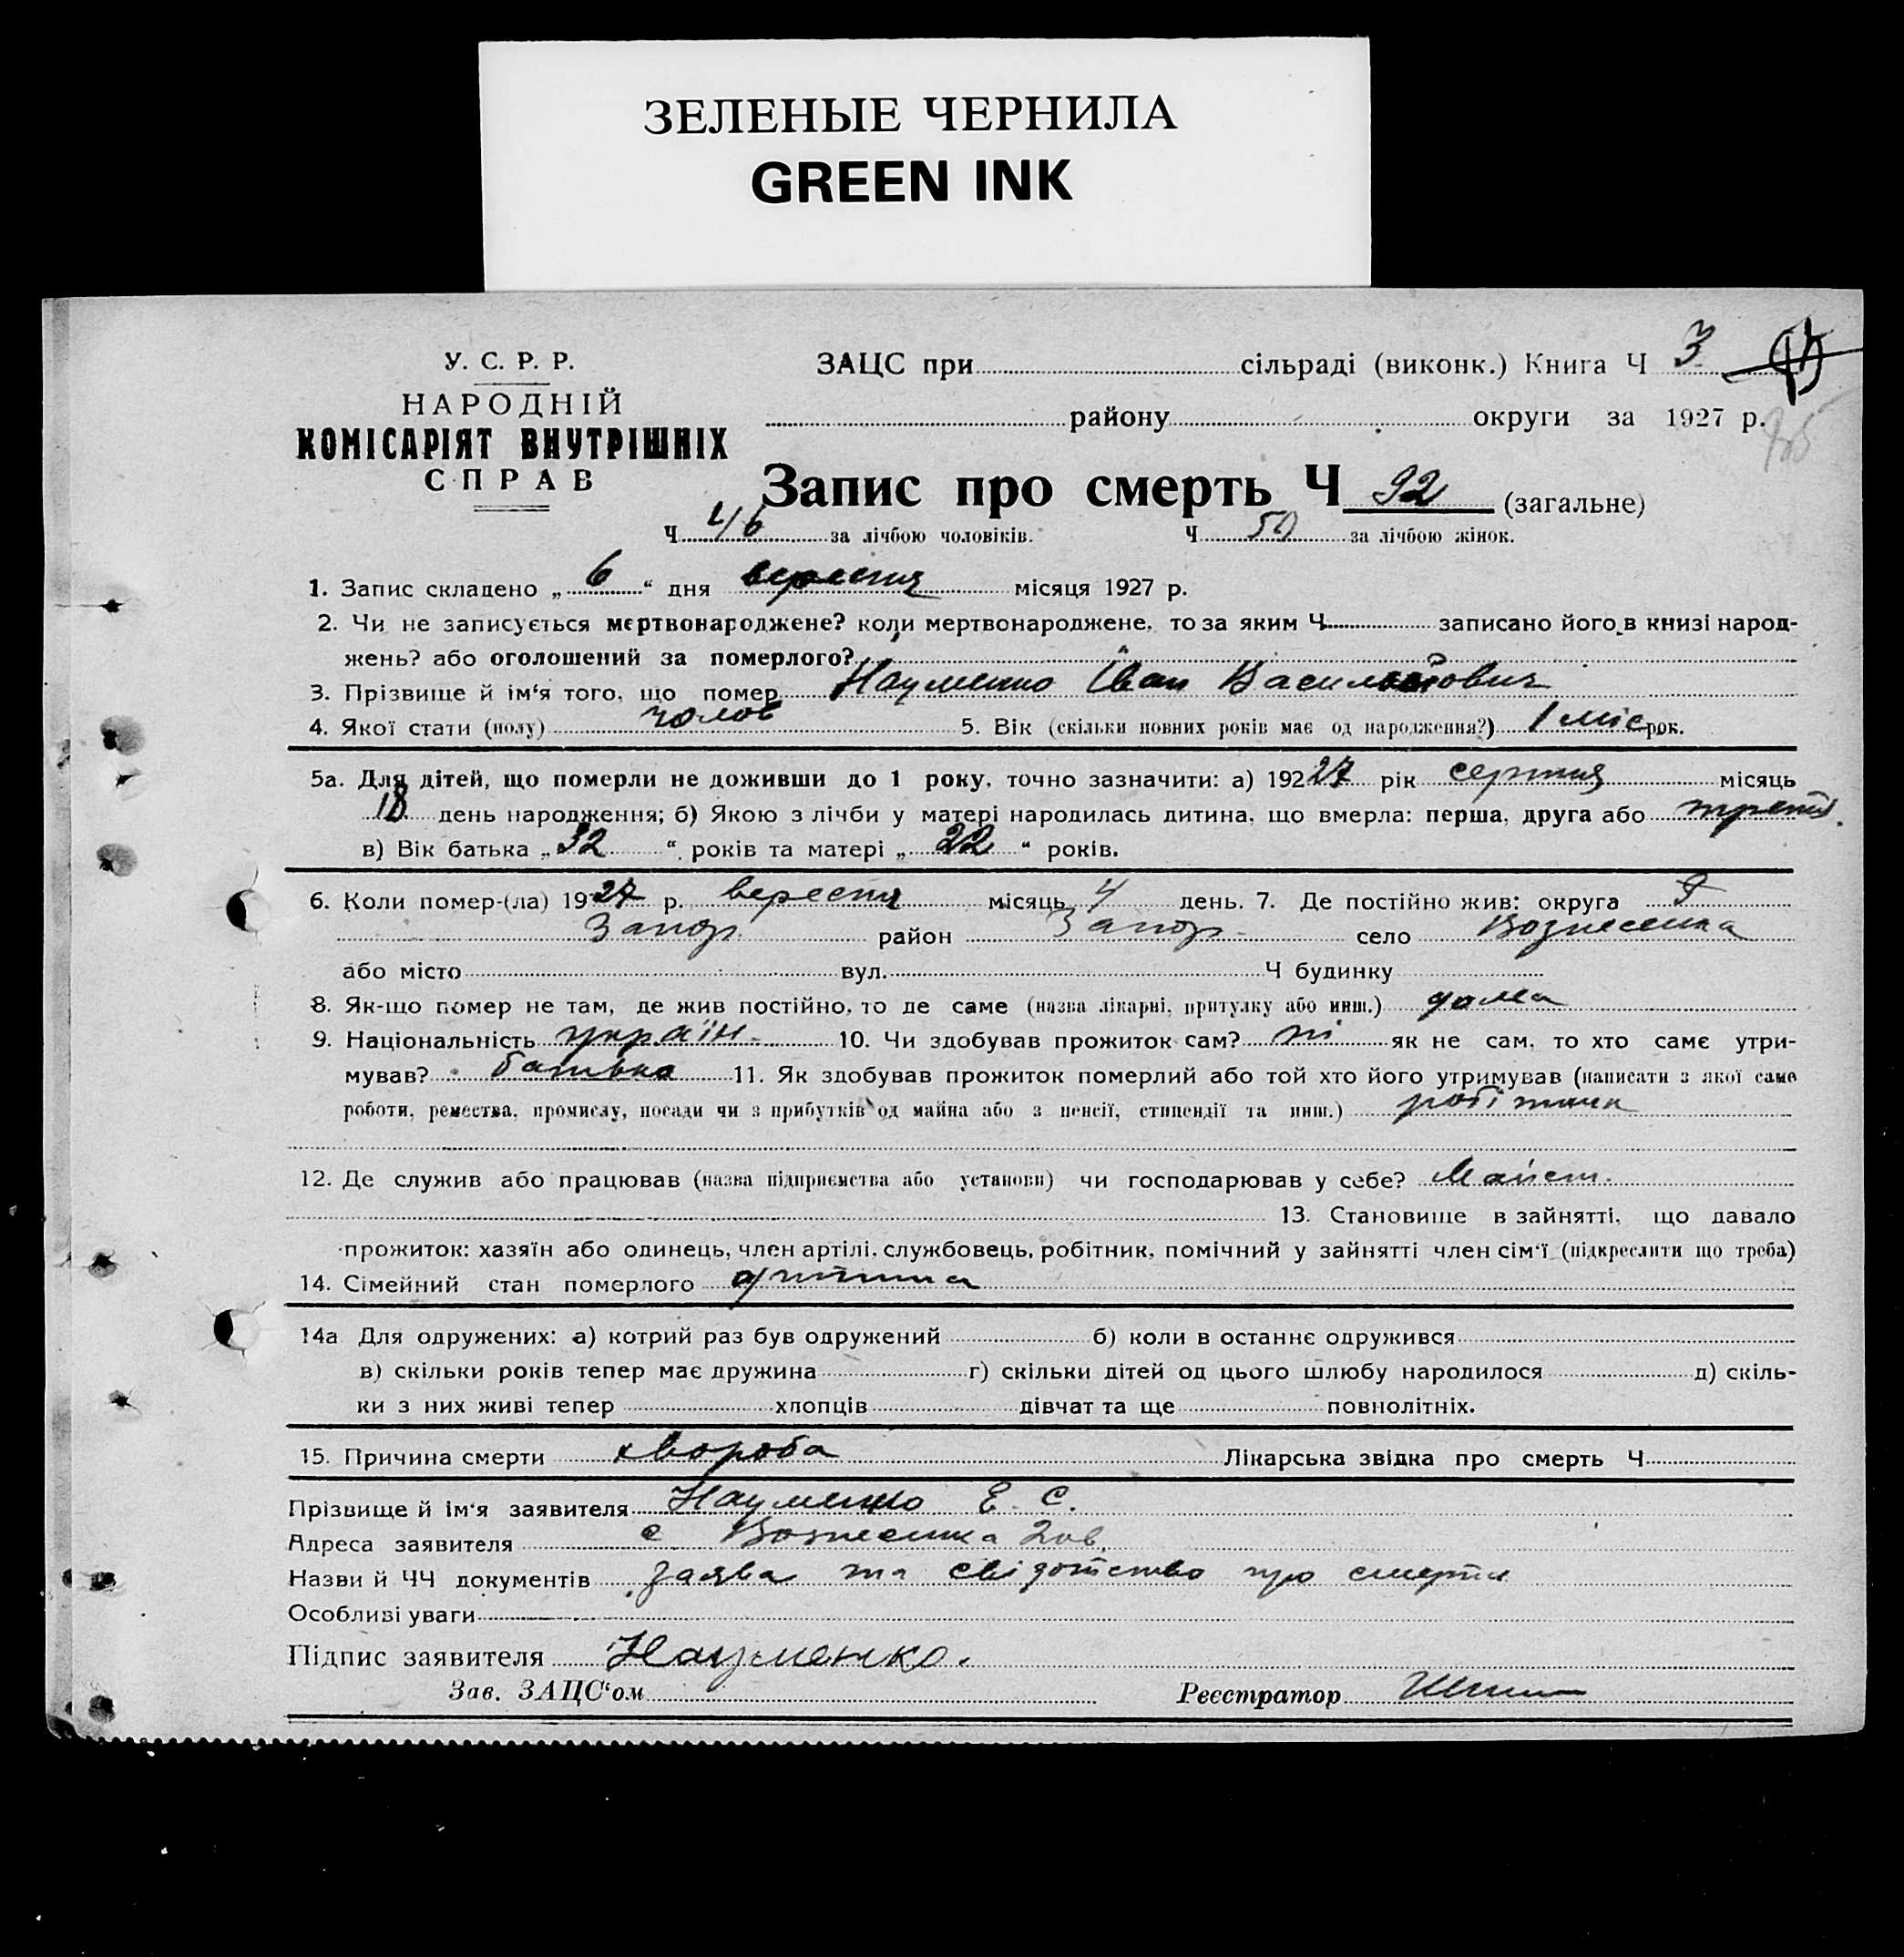 ЗЕЛЕНЫЕ ЧЕРНИЛА
GREEN INK
У. С. Р. Р.
НАРОДНІЙ
КОМІСАРІЯТ ВНУТРІШНІХ
СПРАВ
ЗАЦС при сільраді (виконк.) Книга Ч 3
району округи за 1927 р.
Запис про смерть Ч 92 (загальне)
Ч 46 за лічбою чоловіків. Ч 50 за лічбою жінок.
1. Запис складено „ 6 “ дня вересня місяця 1927 р.
2. Чи не записується мертвонароджене? коли мертвонароджене, то за яким Ч. записано його в книзі народ-
жень? або оголошений за померлого?
3. Прізвище й ім‘я того, що помер Науменко Іван Васильович
4. Якої стати (полу) чолов 5. Вік (скільки повних років має од народження?) 1 міс рок.
5а. Для дітей, що померли не доживши до 1 року, точно зазначити: а) 192 27 рік серпня місяць
18 день народження; б) Якою з лічби у матері народилась дитина, що вмерла: перша, друга або третя.
в) Вік батька „ 32 “ років та матері „ 22 “ років.
6. Коли помер-(ла) 19 27 р. вересня місяць 4 день. 7. Де постійно жив: округа
Запор. район Запор. село Вознесенка
або місто вул. Ч будинку
8. Як-що помер не там, де жив постійно, то де саме (назва лікарні, притулку або инш.) дома
9. Національність україн. 10. Чи здобував прожиток сам? ні як не сам, то хто саме утри-
мував? батько 11. Як здобував прожиток померлий або той хто його утримував (написати з якої саме
роботи, ремества, промислу, посади чи з прибутків од майна або з пенсії, стипендії та инш.) робітник
12. Де служив або працював (назва підприємства або установи) чи господарював у себе? Майст.
13. Становище в зайнятті, що давало
прожиток: хазяїн або одинець, член артілі, службовець, робітник, помічний у зайнятті член сім‘ї (підкреслити що треба)
14. Сімейний стан померлого дитина
14а Для одружених: а) котрий раз був одружений б) коли в останнє одружився
в) скільки років тепер має дружина г) скільки дітей од цього шлюбу народилося д) скіль-
ки з них живі тепер хлопців дівчат та ще повнолітніх.
15. Причина смерти хвороба Лікарська звідка про смерть Ч
Прізвище й ім‘я заявителя Науменко Е. С.
Адреса заявителя с Вознесенка
Назви й ЧЧ документів заява та свідотство про смерть
Особливі уваги
Підпис заявителя Науменко.
Зав. ЗАЦС‘ом Реєстратор